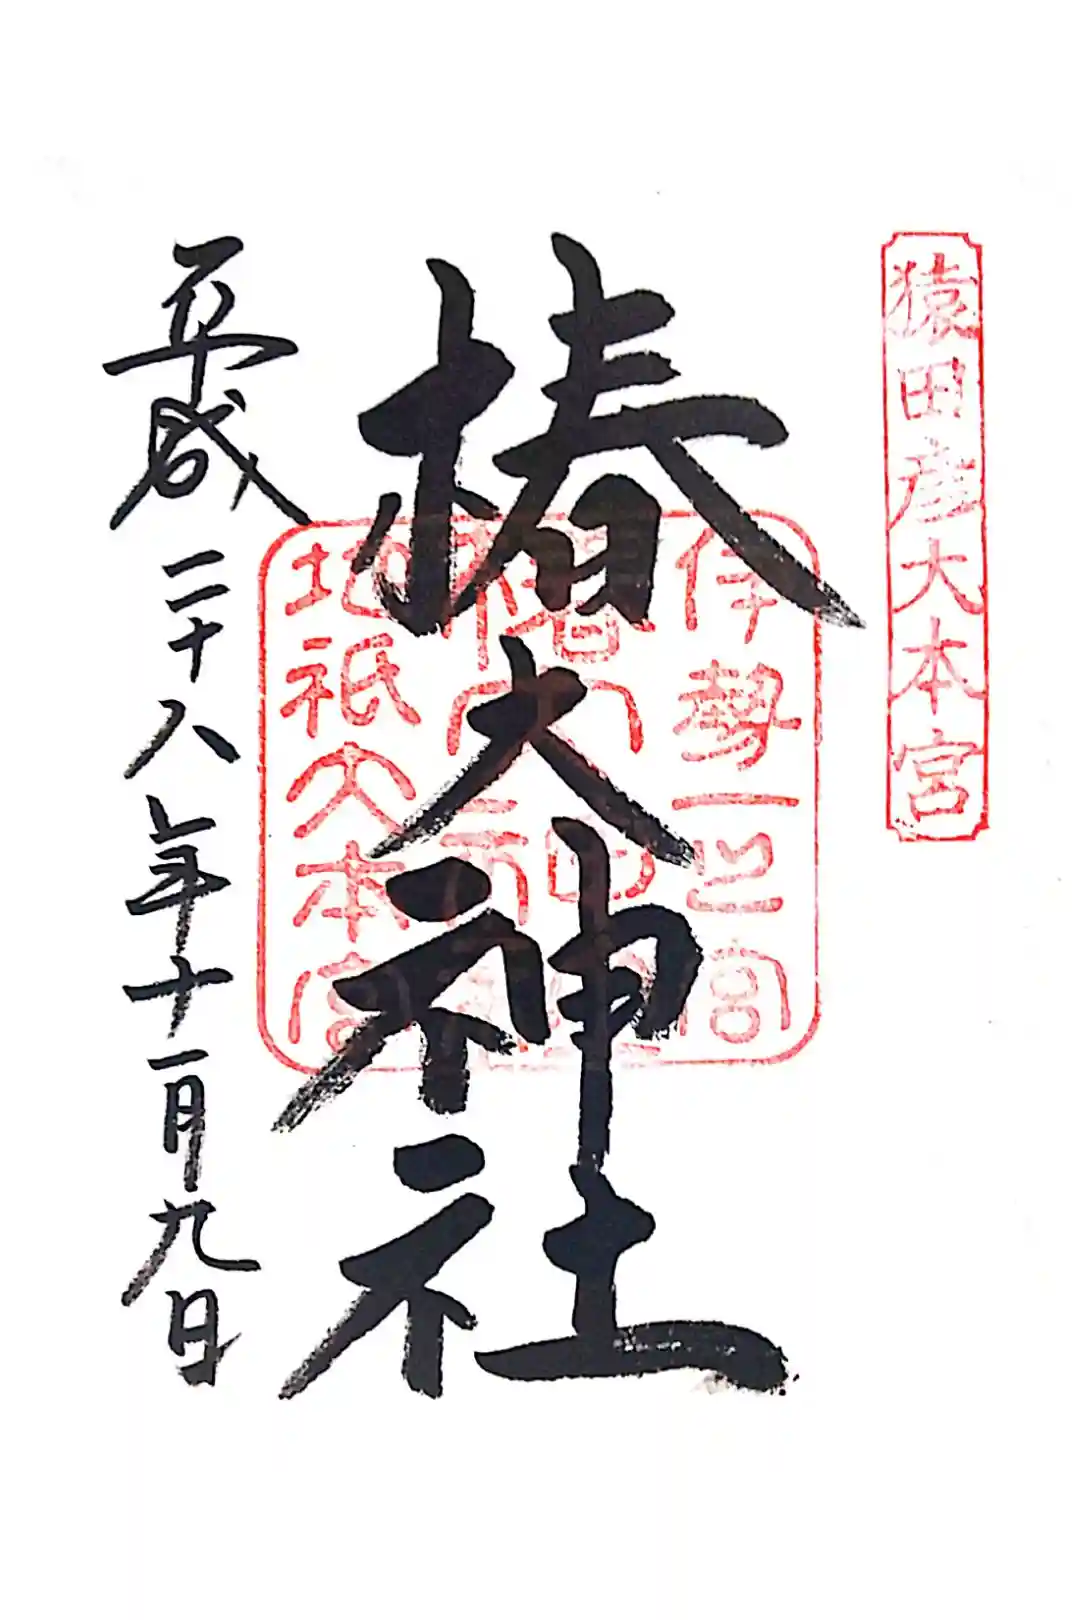 猿田彦大本宮
伊勢一之宮
椿大神社
地祇大本宮
椿大神社
平成二十八年十一月九日